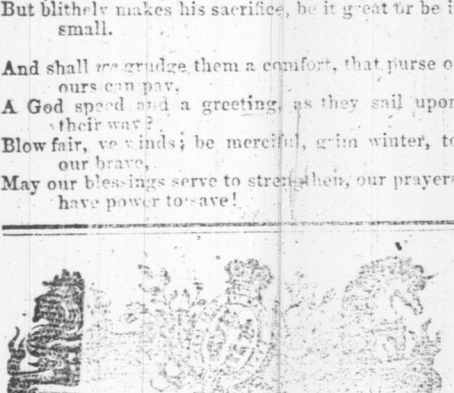 But blithely makes his sacrifice, be it great or be i
small.
And shall we grudge them a comfort, that purse o
ours can pay,
A God speed and a greeting, as they sail upon
their way?
Blow fair, ye winds; be merciful, grim winter, to
our brave,
May our blessings serve to strengthen, our prayers
have power to save!